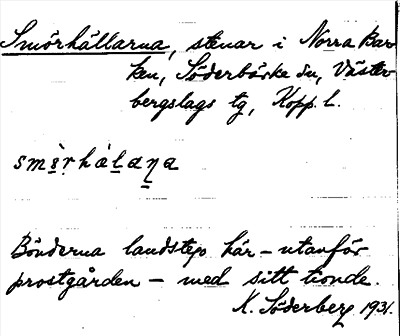 Smörhällarna, stenar i Norra Bar
ken, Söderbärke sn, Väster
bergslags tg, Kopp. l.
smèr̥hàl̥aṇa
Bönderna landsteg här – utanför
prostgården – med sitt tionde.
K. Söderberg 1931.